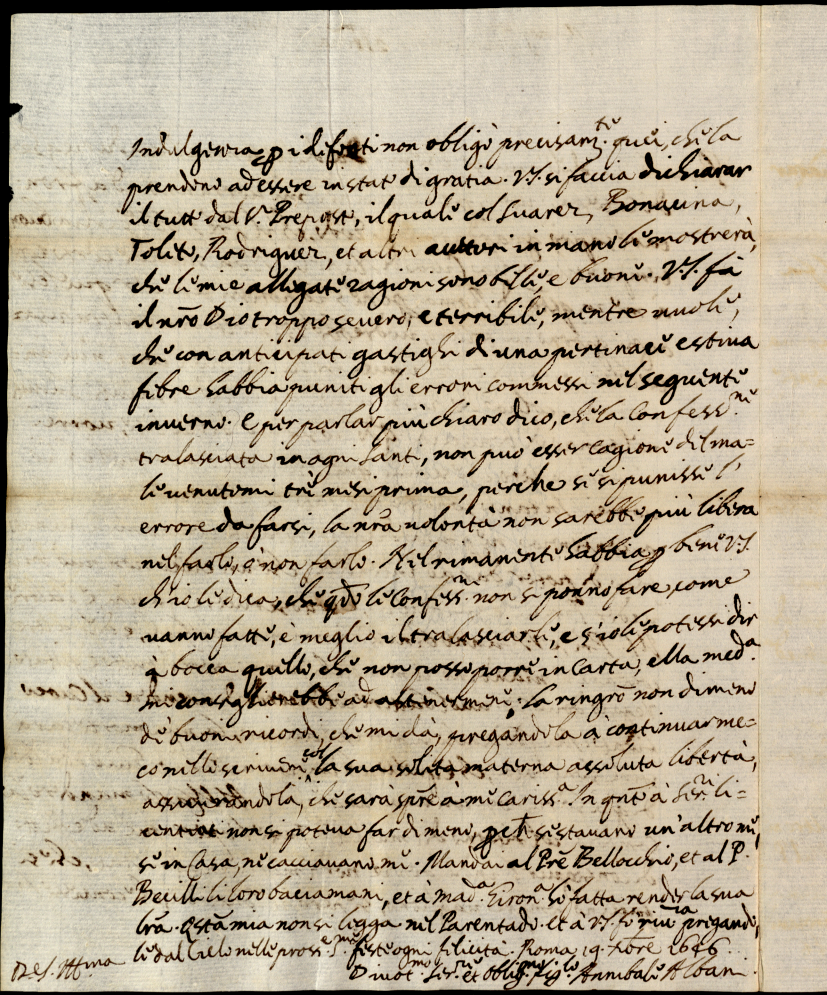 Indulgenza p i defonti non obligò precisam.te quei, che la
prendono ad essere in stato di gratia. V.S. si faccia dichiarar
il tutto dal S.r Preposto, il quale col Suarez, Bonacina,
Toleto, Rodriguez, et altri auttori in mano le mostrerà,
che le mie allegate ragioni sono belle, e buone. V.S. fà
il nrõ Dio troppo severo, e terribile, mentre vuole,
che con anticipati gastighi di una pertinace estiva
febre habbia puniti gli errori commessi nel seguente
inverno. E per parlar più chiaro dico, che la Confess.ne
tralasciata in ogni Santi, non può esser cagione del ma=
le venutomi trè mesi prima, perche se si punisse l'
errore da farsi, la nrã volontà non sarebbe più libera
nel farlo, ò non farlo. Nel rimanente habbia p bene V.S.
ch'io le dica, che qdo le Confess.ni non si ponno fare, come
vanno fatte, è meglio il tralasciarle, e s'io le potessi dir
à bocca quello, che non posso porre in Carta, ella med.a
me consiglierebbe ad astenermene. La ringrõ non dimeno
de buoni ricordi, che mi dà, pregandola à continuar me=
co nello scrivere col la sua solita materna assoluta libertà,
assicurandola, che sarà sprẽ à me cariss.a In qntõ à Ser.ri li=
centiat non si poteva far di meno, pchè se stavano un'altro me
se in Casa, ne cacciavano me. Mandai al Prẽ Bellocchio, et al P.
Becilli li loro baciamani, et à mad.a Giron.a hò fatta render la sua
lrã. Qstã mia non si legga nel Parentado. et à V.S. fò riu.za pregando
le dal Cielo nelle pross.e S.me feste ogni felicità. Roma 19 Xbre 1646.
Di V.S. Ill.ma
Divot.mo Ser.re et oblig.mo fig.lo Annibale Alban